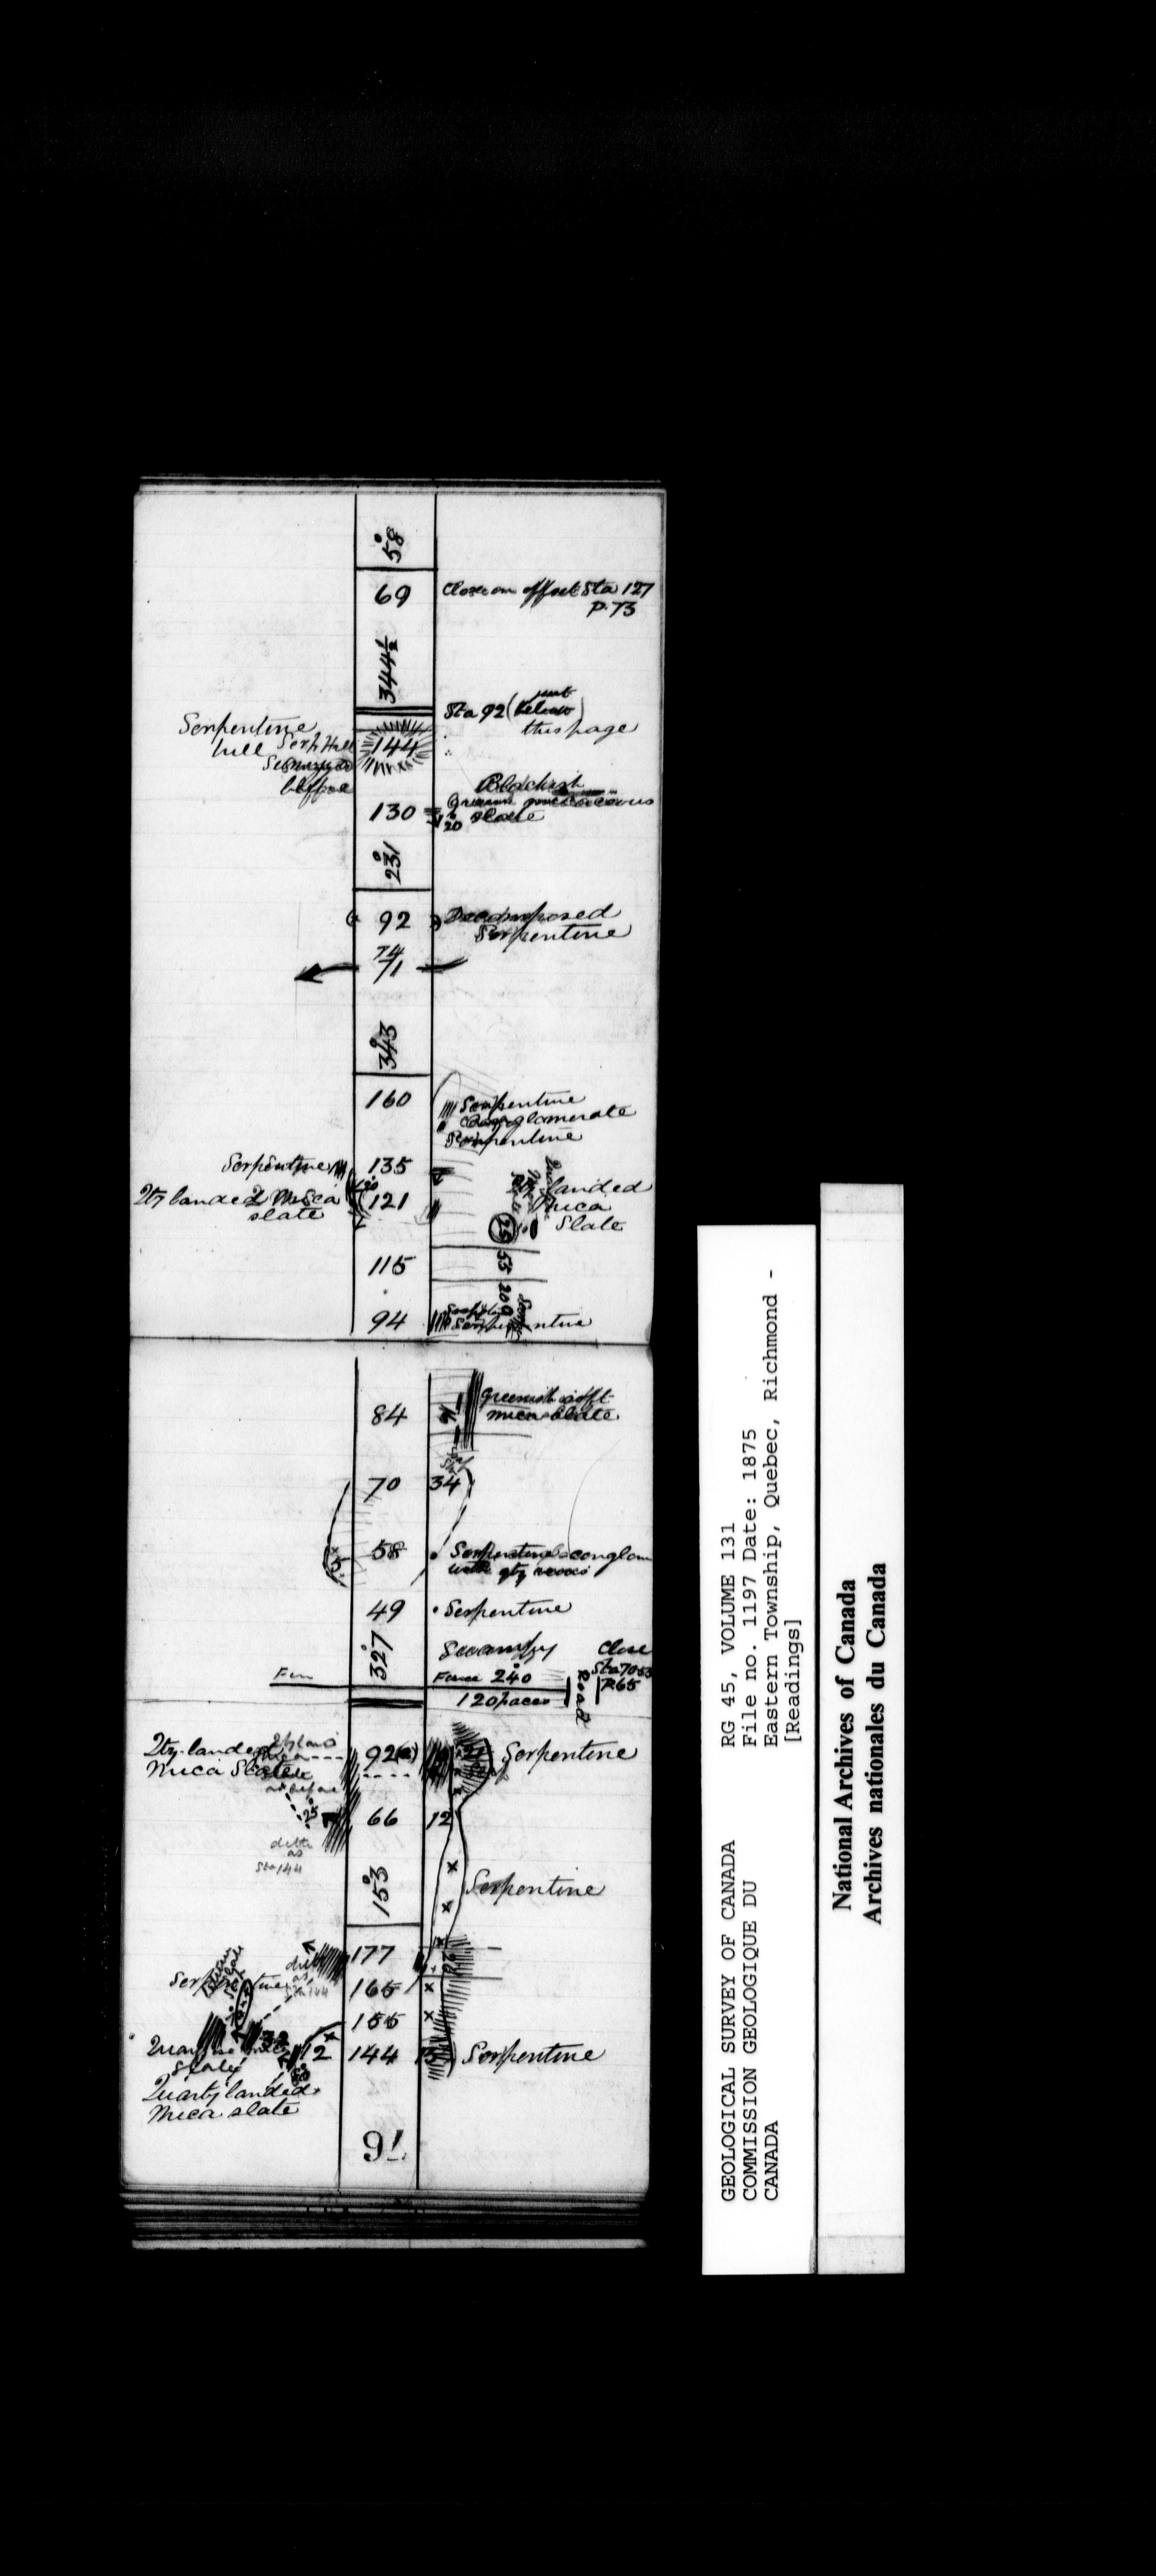 58°
69 Close on offset Sta 127
P. 73
344½
Sta 92 (just below)
this page
Serpentine
hill Serp Hill
144
Blackish
micaceous
130 20 slate
231°
92 Decomposed
Serpentine
74
71
343°
160 Serpentine
Conglomerate
Serpentine
Serpentine 135
Qtz banded Mica 121 banded
slate Mica
Slate
25
115 55
20
94 Serpentine
84 Greenish soft
mica slate
70 34
58 Serpentine conglom
with qtz
49 Serpentine
327° Swampy Close
Sta 70
Fence 240° P 65
120 paces Road
Qtz. banded 92 (a) Serpentine
Mica Slate
as before
25
66 12
ditto
as
Sta 144
153° Serpentine
177
ditto
as
Sta 144
Serpentine 165
155
32 12 144 15 Serpentine
slate
Quartz banded
Mica slate
91
GEOLOGICAL SURVEY OF CANADA
COMMISSION GEOLOGIQUE DU
CANADA
RG 45, VOLUME 131
File no. 1197 Date: 1875
Eastern Township, Quebec, Richmond -
[Readings]
National Archives of Canada
Archives nationales du Canada